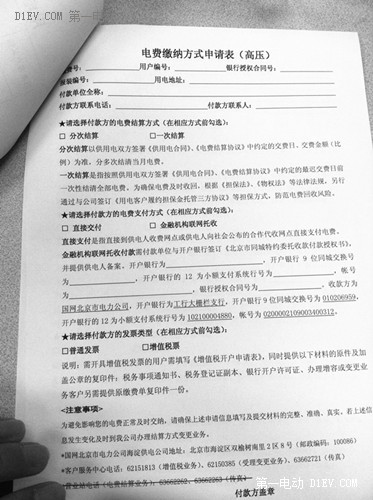 D1EV.COM 第一电动
电费缴纳方式申请表（高压）
号：用户编号：银行授权合同号：
报装编号：用电地址：
付款单位全称：
付款方联系电话：付款方联系人：
★请选择付款方的电费结算方式（在相应方式前勾选）：
□ 分次结算 □一次结算
分次结算以供用电双方签署《供用电合同》、《电费结算协议》中约定的交费日、交费金额（比
例）为准，分多次结清当月电费。
一次结算是指按照供用电双方签署《供用电合同》、《电费结算协议》中约定的最迟交费日前
一次性结清全部电费。为确保电费及时收回，根据《担保法》、《物权法》等法律法规，另行
通过与公司签订《用电客户履约担保金托管三方协议》等担保方式，防范电费回收风险。
★请选择付款方的电费支付方式（在相应方式前勾选）：
□ 直接交付 □ 金融机构联网托收
直接支付是指直接到供电人收费网点或供电人向社会公布的合作代收网点直接支付电费。
金融机构联网托收付款需付款单位与开户银行签订《北京市同城特约委托收款付款授权书》，
并提供供电人备案，开户银行为，开户银行 9 位同城交换号
为，开户银行的 12 为小额支付系统行号为，帐号
为，收款方为
国网北京市电力公司，开户银行为工行大栅栏支行，开户银行 9 位同城交换号为 010206959，
开户银行的 12 为小额支付系统行号为 102100004880，帐号为 0200002109003400312。
★请选择付款方的发票类型（在相应方式前勾选）：
□普通发票 □增值税票
说明：需开具增值税发票的用户需填写《增值税开户申请表》，同时提供以下材料的原件及加
盖公章的复印件：税务事项通知书、税务登记证副本、银行开户许可证、办理增容或变更业
务客户另需提供原缴费单复印件一份。
<注意事项>
为避免影响您的电费正常及时交纳，请确保上述申请信息填写及提交材料的完整、准确、真实，若上述信
息发生变化及时到我公司办理结算方式变更业务。
*国网北京市电力公司海淀供电公司地址：北京市海淀区双榆树南里 2 区 8 号（邮政编码：100086）
*客户服务中心电话：62151813（增值税业务）、62150385（受理变更业务）、63662721（传真）
*营业站电话（电费结算业务）：63662262、63662263（传真）
付款方盖章
第一电动 D1EV.COM